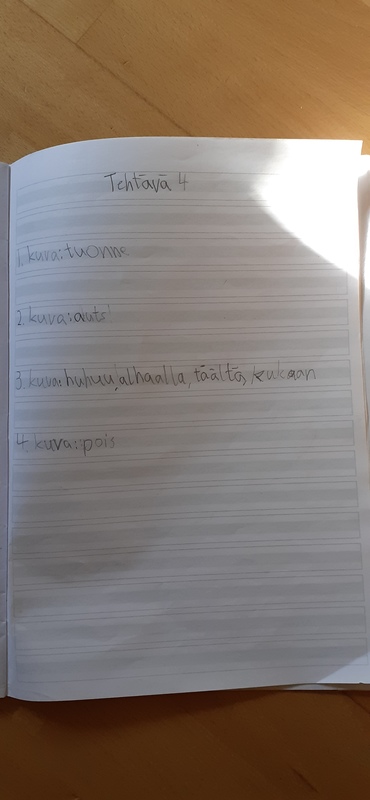 Tehtävä 4
1. kuva: tuonne
2. kuva: auts!
3. kuva: huhuu, alhaalla, täältä, kukaan
4. kuva: pois